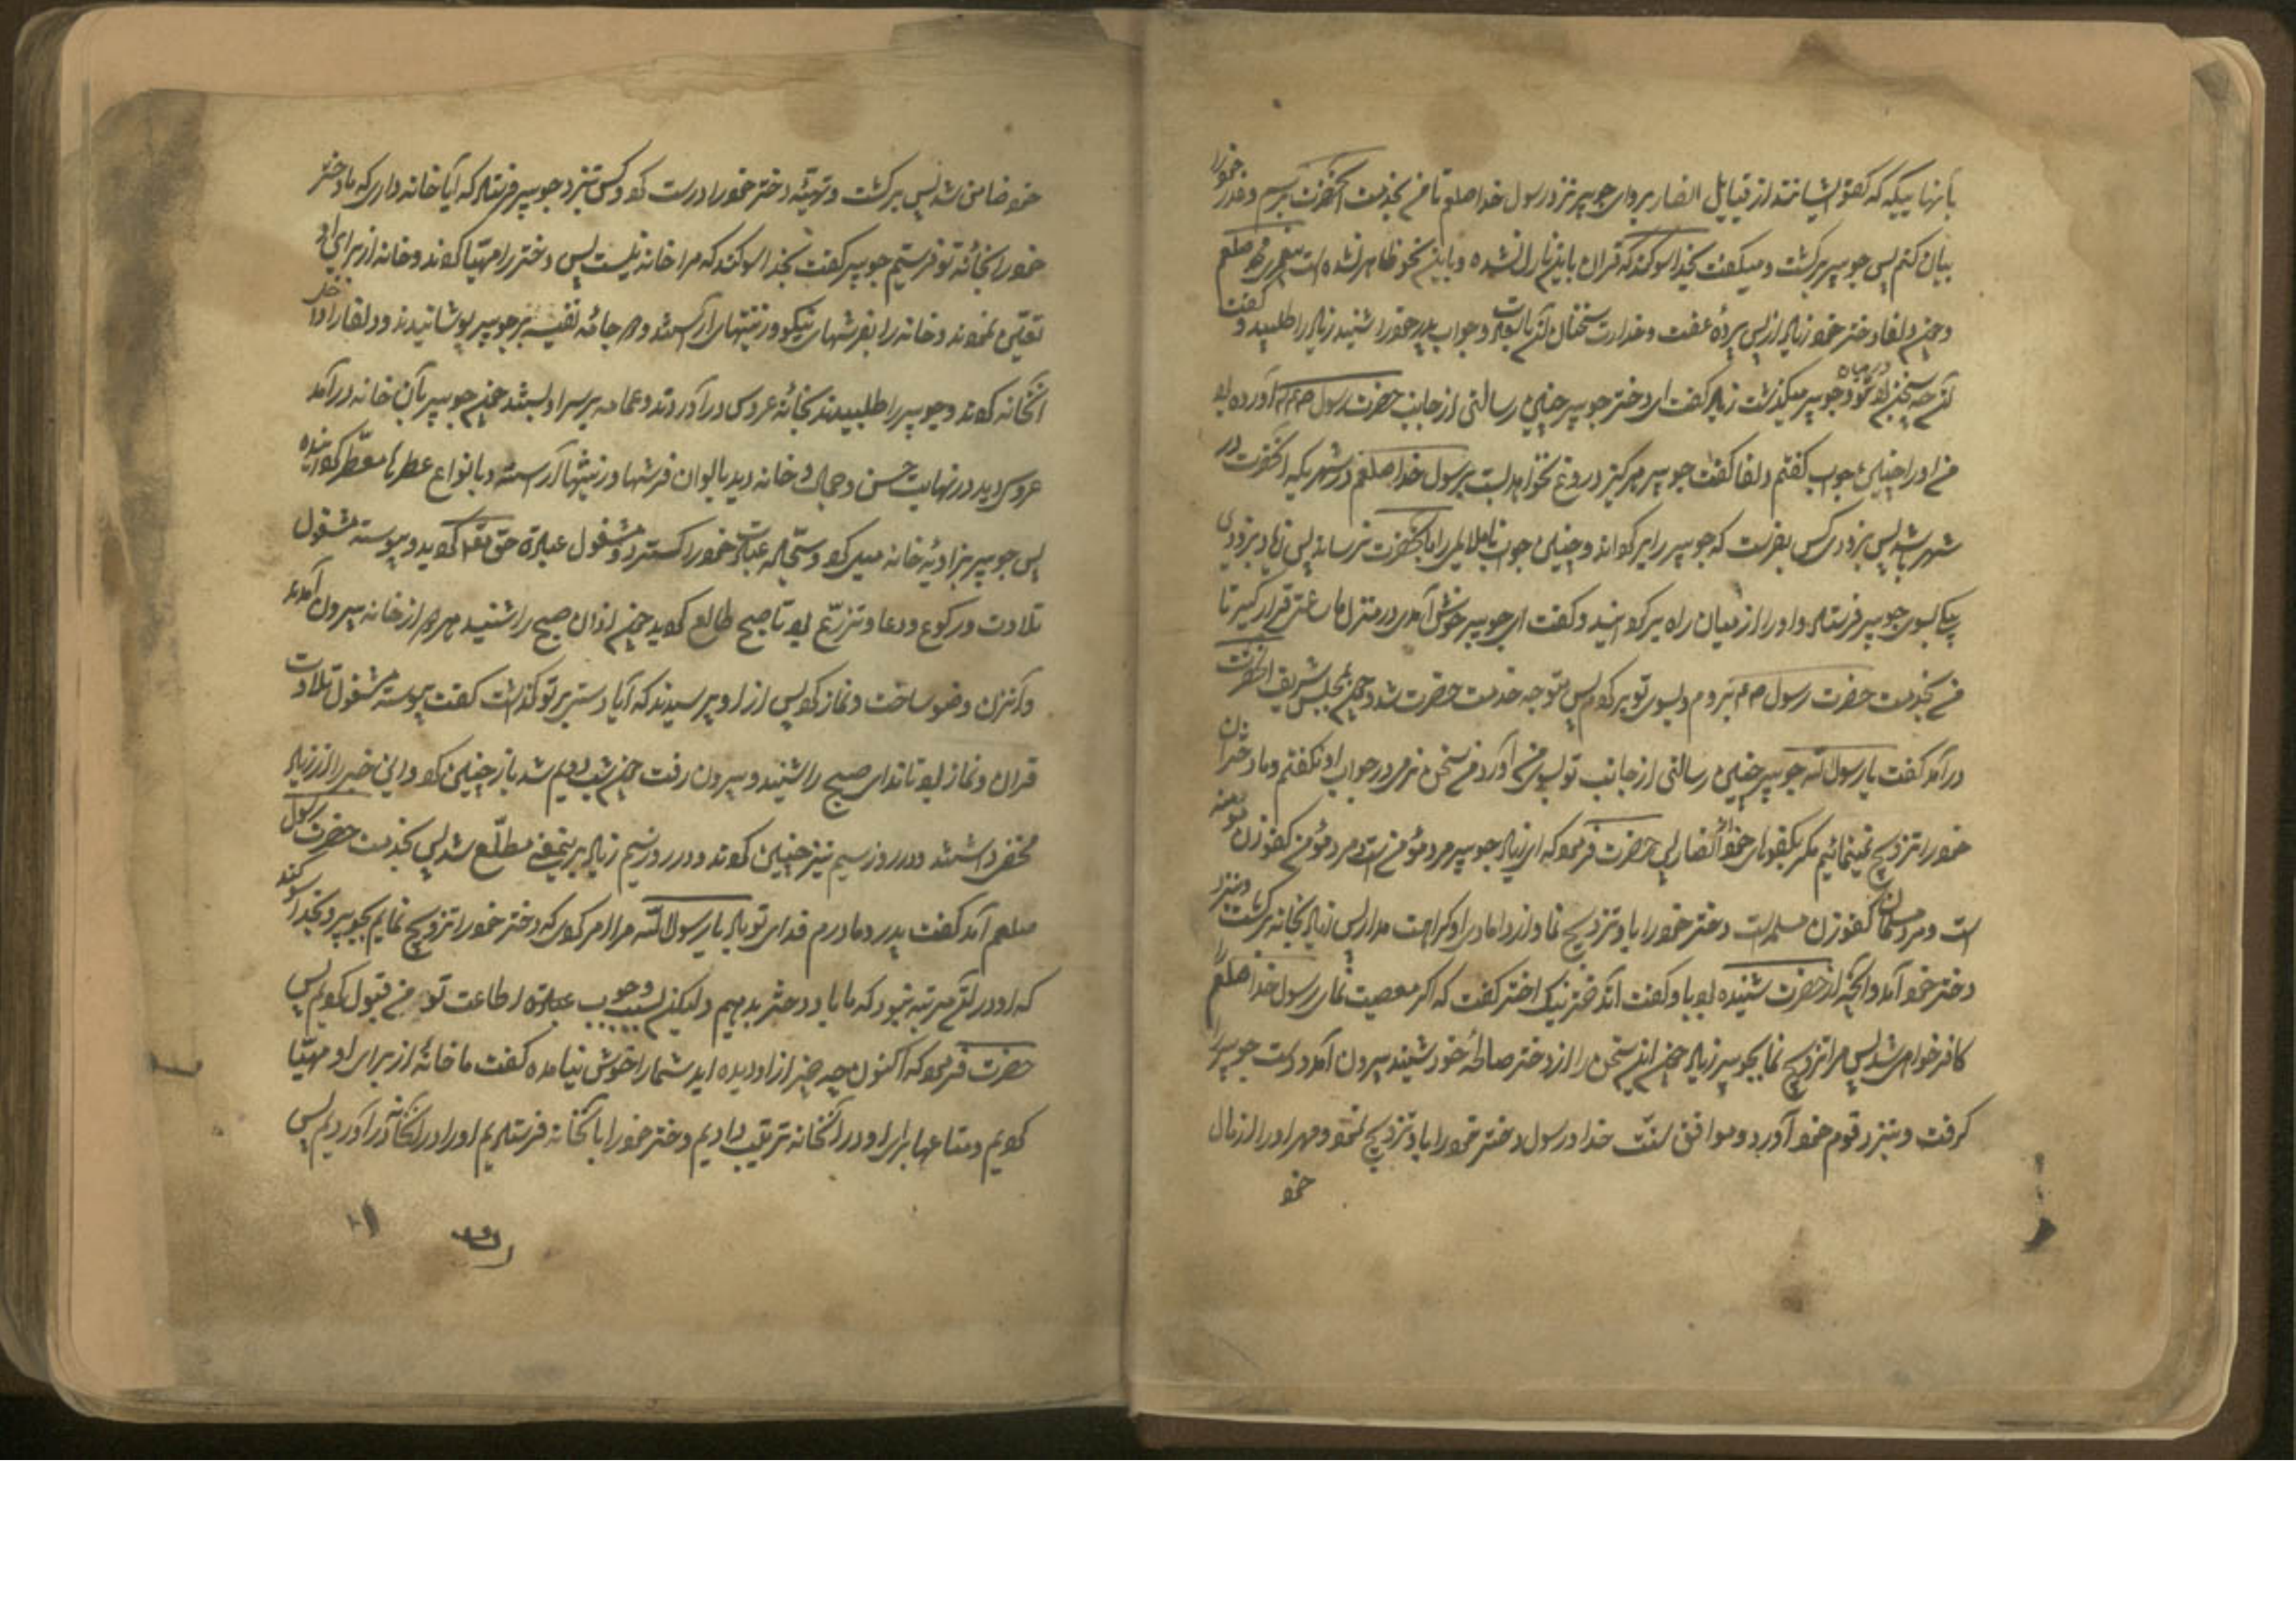 بآنها میکه که کفو ایشانند از قبایل انصار برو ای جویبر نزد رسول خدا صلعم تا من بخدمت آنحضرت برسم و عذر خود را
بیان کنم پس جویبر برگشت و میگفت بخدا سوگند که قرآن باین نازل نشده و باین نحو ظاهر نشده است پیغمبری محمد صلعم
و چون دلفا دختر خود زیاد از پس پرده عفت و خدارت سخنان آن و جواب پدر خود را شنید زیاد را طلبید و گفت
این چه سخن بود که در میان تو و جویبر میگذشت زیاد گفت ای دختر جویبر چنین رسالتی از جانب حضرت رسول صلعم آورده بود
من او را چنین جواب گفتم دلفا گفت جویبر هرگز دروغ نخواهد بست بر رسول خدا صلعم در شهریکه آنحضرت در
شهر باشد پس بزودی کس بفرست که جویبر را برگرداند و چنین جواب ناملایمی را بآنحضرت نرساند پس زیاد بزودی
پیکی بسوی جویبر فرستاد و او را از میان راه برگردانید و گفت ای جویبر خوش آمدی در منزل ما ساعتی قرار گیر تا
من بخدمت حضرت رسول صلعم بروم و بسوی تو برگردم پس متوجه خدمت حضرت شد و چون بمجلس شریف آنحضرت
درآمد گفت یا رسول الله جویبر چنین رسالتی از جانب تو بسوی من آورد من سخن نرمی در جواب او نگفتم و ما دختران
خود را تزویج نمینمائیم مگر بکفوهای خود از انصار پس حضرت فرمود که ای زیاد جویبر مرد مؤمن است و مرد مؤمن کفو زن مؤمنه
است و مرد مسلمان کفو زن مسلمه است دختر خود را باو تزویج نما و از دامادی او کراهت مدار پس زیاد بخانه برگشت و بنزد
دختر خود آمد و آنچه از حضرت شنیده بود باو گفت آن دختر نیک اختر گفت که اگر معصیت نمائی رسول خدا صلعم
کافر خواهی شد پس مرا تزویج نما بجویبر زیاد چون این سخن را از دختر صالحه خود شنید بیرون آمد و دست جویبر را
گرفت و بنزد قوم خود آورد و موافق سنت خدا و رسول دختر خود را باو تزویج نمود و مهر او را از مال
خود
خود ضامن شد پس برگشت و تهیئه دختر خود را درست کرد و کس بنزد جویبر فرستاد که آیا خانه داری که ما دختر
خود را بخانه تو فرستیم جویبر گفت بخدا سوگند که مرا خانه نیست پس دختر را مهیا کردند و خانه از برای او
تعیین نمودند و خانه را بفرشهای نیکو و زینتهای آراستند و دو جامه نفیسه بر جویبر پوشانیدند و دلفا را داخل
آنخانه کردند و جویبر را طلبیدند بخانه عروس درآوردند و عمامه بر سر او بستند چون جویبر بآن خانه درآمد
عروسی دید در نهایت حسن و جمال و خانه دید بالوان فرشها و زینتها آراسته و بانواع عطرها معطر گردانیده
پس جویبر بزاویه خانه میل کرد و سجاده عبادت خود را گسترد و مشغول عبادت حق تعالی گردید و پیوسته مشغول
تلاوت و رکوع و دعا و تضرع بود تا صبح طالع گردید چون اذان صبح را شنید هر دو از خانه بیرون آمدند
و آن زن وضو ساخت و نماز کرد پس از او پرسیدند که آیا دستی بر تو گذاشت گفت پیوسته مشغول تلاوت
قرآن و نماز بود تا ندای صبح را شنید و بیرون رفت چون شب دویم شد باز چنین کرد و این خبر را از زیاد
مخفی داشتند و در روز سیم نیز چنین کردند و در روز سیم زیاد بر این معنی مطلع شد پس بخدمت حضرت رسول
صلعم آمد گفت پدر و مادرم فدای تو باد یا رسول الله مرا امر کردی که دختر خود را تزویج نمایم بجویبر و بخدا سوگند
که او در آن مرتبه نبود که ما باو دختر بدهیم و لیکن بسبب وجوب اطاعت تو من قبول کردم پس
حضرت فرمود که اکنون چه چیز از او دیده اید شما را خوش نیامده گفت ما خانه از برای او مهیا
کردیم و متاعها برای او در آنخانه ترتیب دادیم و دختر خود را بآنخانه فرستادیم او را در آنخانه درآوردیم پس